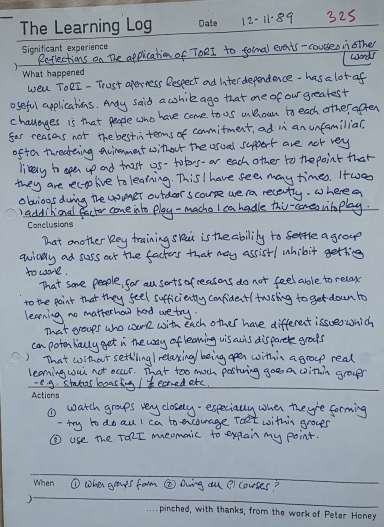 The Learning Log Date 12-11-89 325
Significant experience
Reflections on the application of TORI to formal events - courses in other
words
What happened
Well TORI - Trust openness Respect and Interdependence - has a lot of
useful applications. Andy said a while ago that one of our greatest
challenges is that people who have come to us unknown to each other, often
for reasons not the best in terms of commitment, and in an unfamiliar
often threatening environment without the usual support are not very
likely to open up and trust us - tutors - or each other to the point that
they are receptive to learning. This I have seen many times. It was
obvious during the outdoors course we ran recently - where an
additional factor came into play - macho I can handle this - comes into play.
Conclusions
That another key training skill is the ability to settle a group
quickly and suss out the factors that may assist / inhibit getting
to work.
That some people, for all sorts of reasons do not feel able to relax
to the point that they feel sufficiently confident / trusting to get down to
learning no matter how hard we try.
That groups who work with each other have different issues which
can potentially get in the way of learning vis a vis disparate groups
That without settling / relaxing / being open within a group real
learning will not occur. That too much posturing goes on within groups
- e.g. status boasting / etc.
Actions
① Watch groups very closely - especially when they're forming
- try to do all I can to encourage TORI within groups
② Use the TORI mneumonic to explain my point.
When ① When groups form ② During all courses?
....pinched, with thanks, from the work of Peter Honey